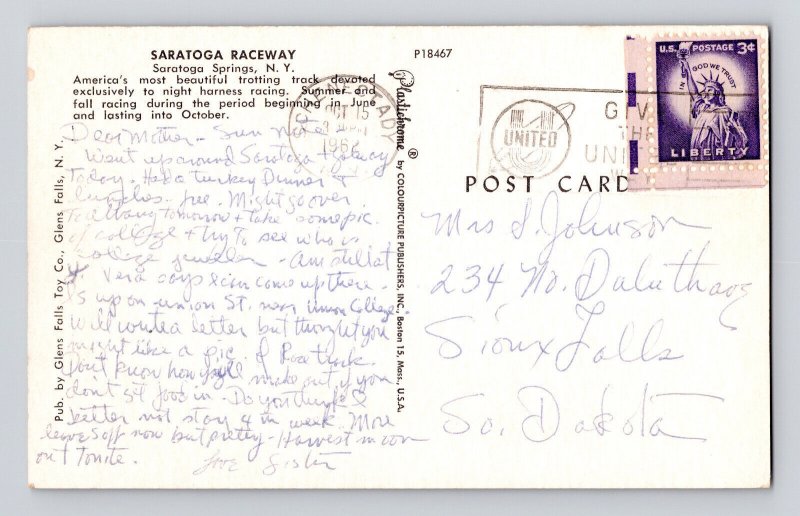 SARATOGA RACEWAY
Saratoga Springs, N. Y.
America's most beautiful trotting track devoted
exclusively to night harness racing. Summer and
fall racing during the period beginning in June
and lasting into October.
Dear Mother - Sun nite
Went up around Saratoga +
Today - Had a turkey Dinner +
free. Might go over
to tomorrow + take some pic.
of college + try to see who is
college jeweler - Am still at
Vera says I can come up there -
is up on union St. near Union College.
Will write a letter but thought you
might like a pic. of Race track.
Don't know how you'll make out if you
don't get food in - Do you think I
better not stay 4 th week. More
leaves off now but pretty - Harvest moon
out tonite. Love Sister
Pub. by Glens Falls Toy Co., Glens Falls, N. Y.
P18467
Plastichrome ® by COLOURPICTURE PUBLISHERS, INC., Boston 15, Mass., U.S.A.
SCHENECTADY
OCT 15
196
UNITED
GIV
THE
UNI
U.S. POSTAGE 3¢
IN GOD WE TRUST
LIBERTY
POST CARD
Mrs S. Johnson
234 No. Duluth ave
Sioux Falls
So. Dakota